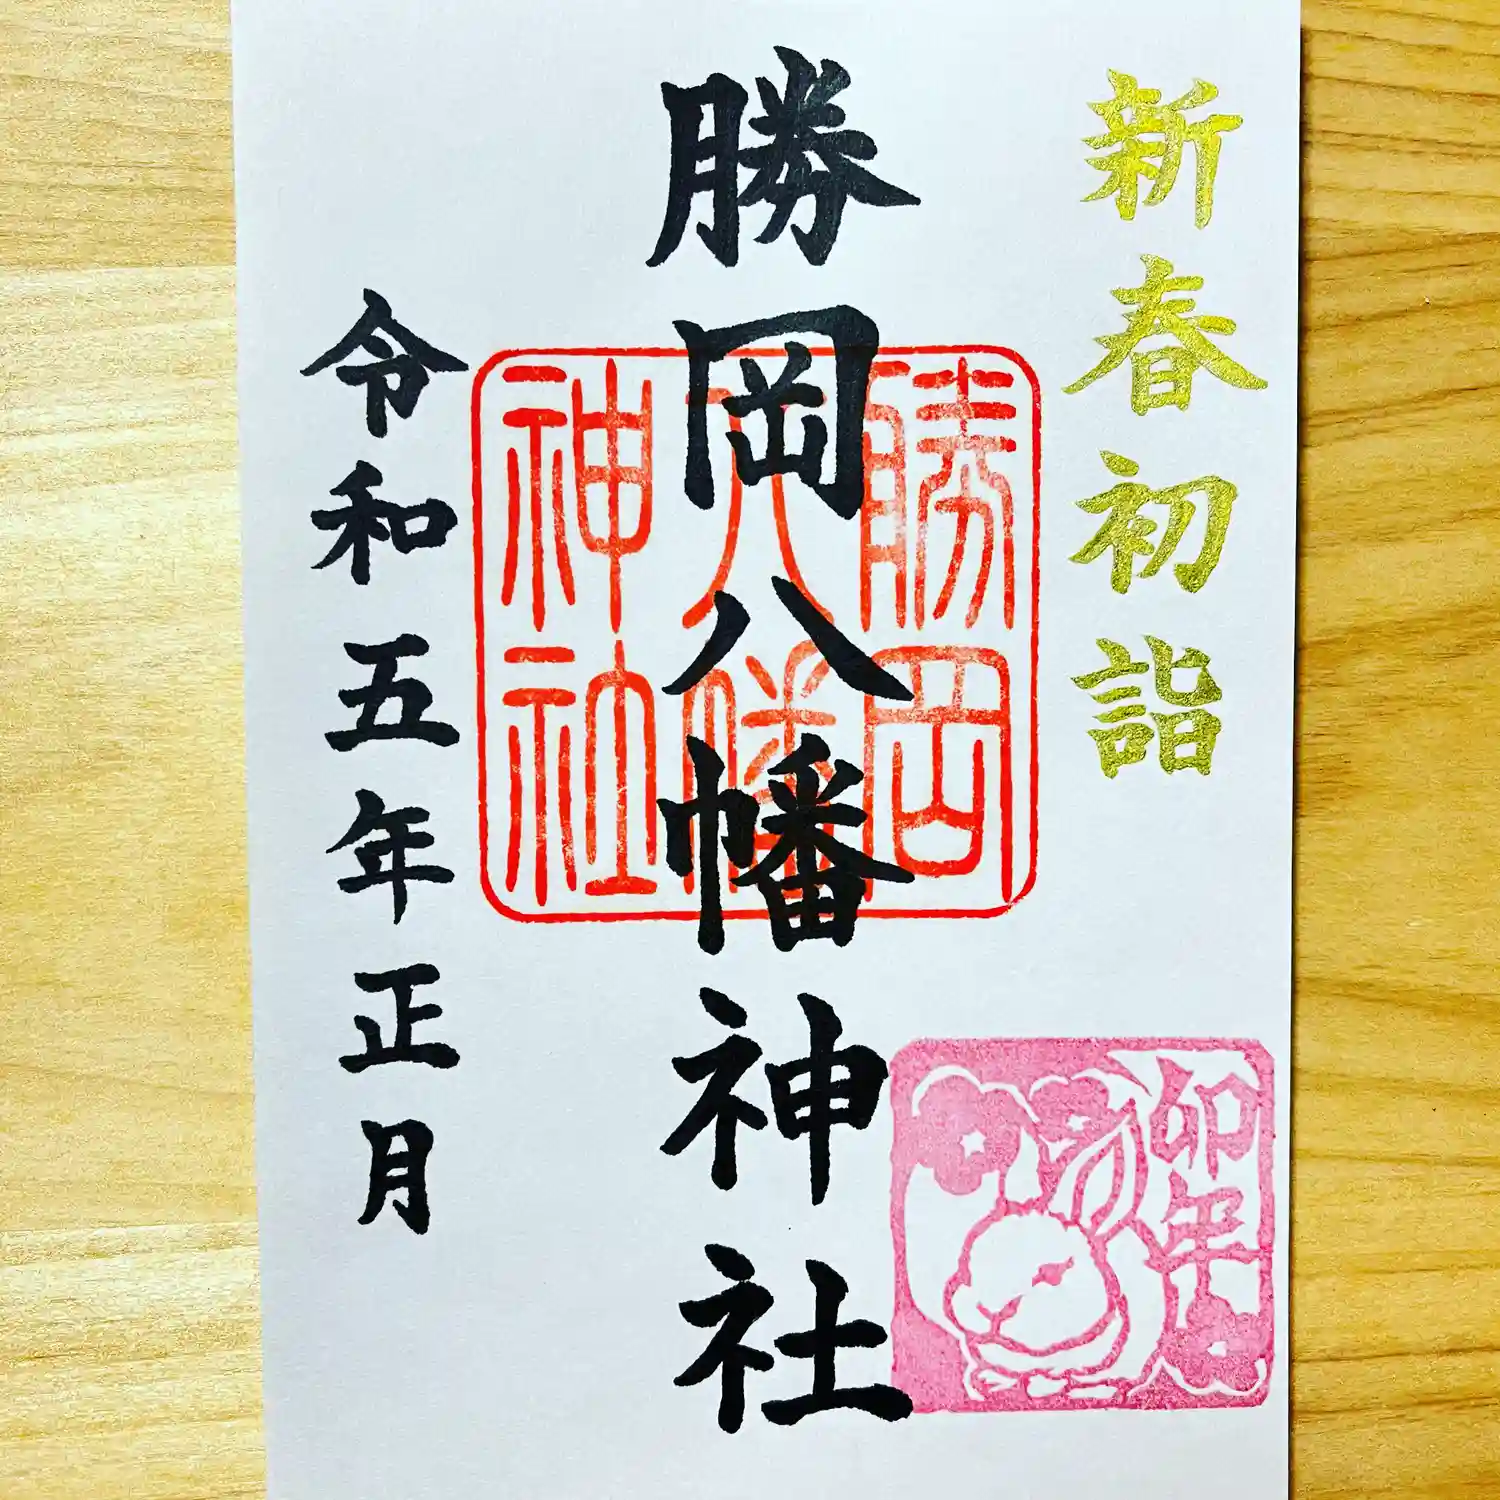 新春初詣
勝岡八幡神社
勝岡
八幡
神社
卯年
令和五年正月